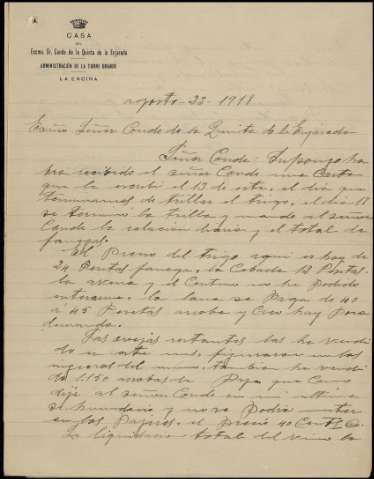 CASA
DEL
Excmo. Sr. Conde de la Quinta de la Enjarada
ADMINISTRACIÓN DE LA TORRE GRANDE
LA ENCINA
agosto-23-1918
Exmo Señor Conde de la Quinta de la Enjarada
Señor Conde: Supongo ha
bra recibido el señor Conde una Carta
que le escribi el 13 de este, el dia que
terminamos de trillar el trigo, el dia 18
se termino la trilla y mando al señor
Conde la relacion diaria y el total de
fanegas.
El Precio del trigo aqui es hoy de
24 Pesetas fanega, la Cebada 13 Pesetas
la avena y el Centeno no he podido
enterarme. la lana se Paga de 40
á 45 Pesetas arroba y Creo hay Poca
demanda.
Las ovejas restantes las he vendi
do en este mes, figuraran en los
ingresos del mismo. tambien he vendi
do 1.150 arrobas de Paja que Como
dije al señor Conde en mi ultima
se hundieron y no se Podia meter
en los Pajares, el precio 40 Cents @.
La liquidacion total del vino la